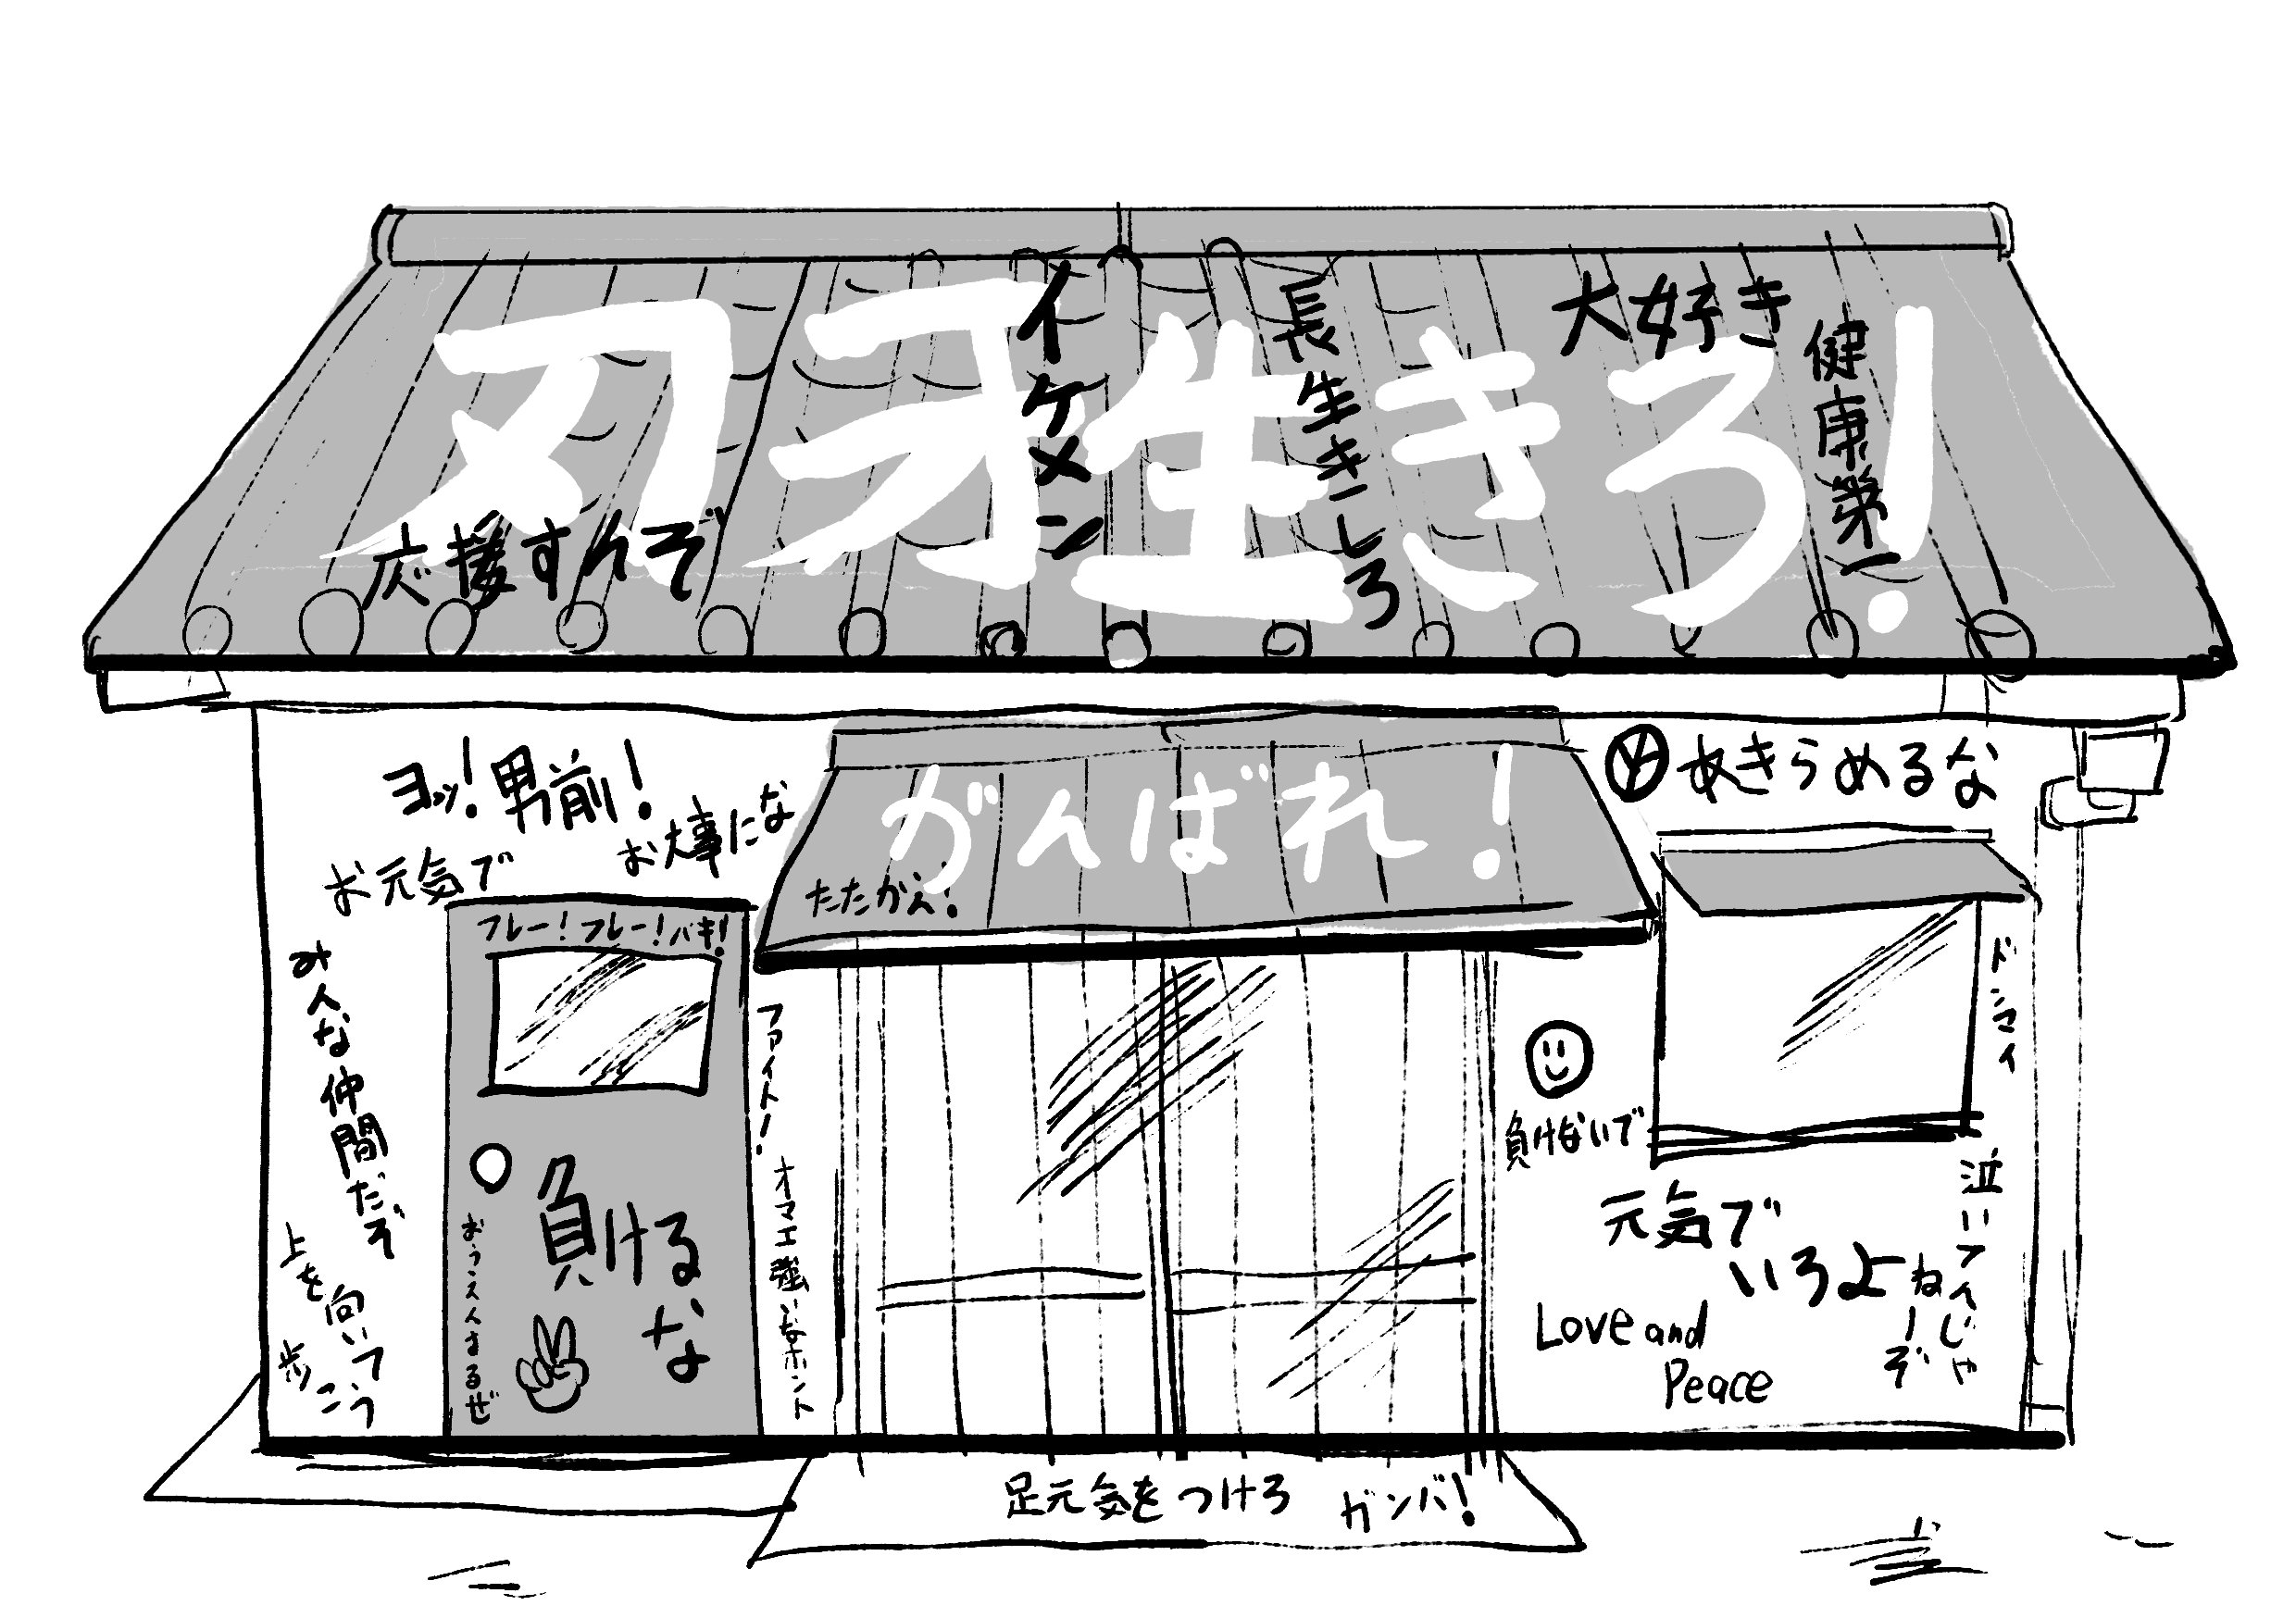 刃牙生きろ!
イケメン
長生きしろ
大好き
健康第一
応援すんぞ
ヨッ!男前!
お大事にな
お元気で
がんばれ!
たたかえ!
あきらめるな
フレー!フレー!バキ!
みんな仲間だぞ
上を向いて
歩こう
ファイト!
オマエ強いなホント
負けるな
おうえんするぜ
ドンマイ
負けないで
元気で
いろよ
泣いてんじゃ
ねーぞ
Love and
Peace
足元気をつけろ
ガンバ!